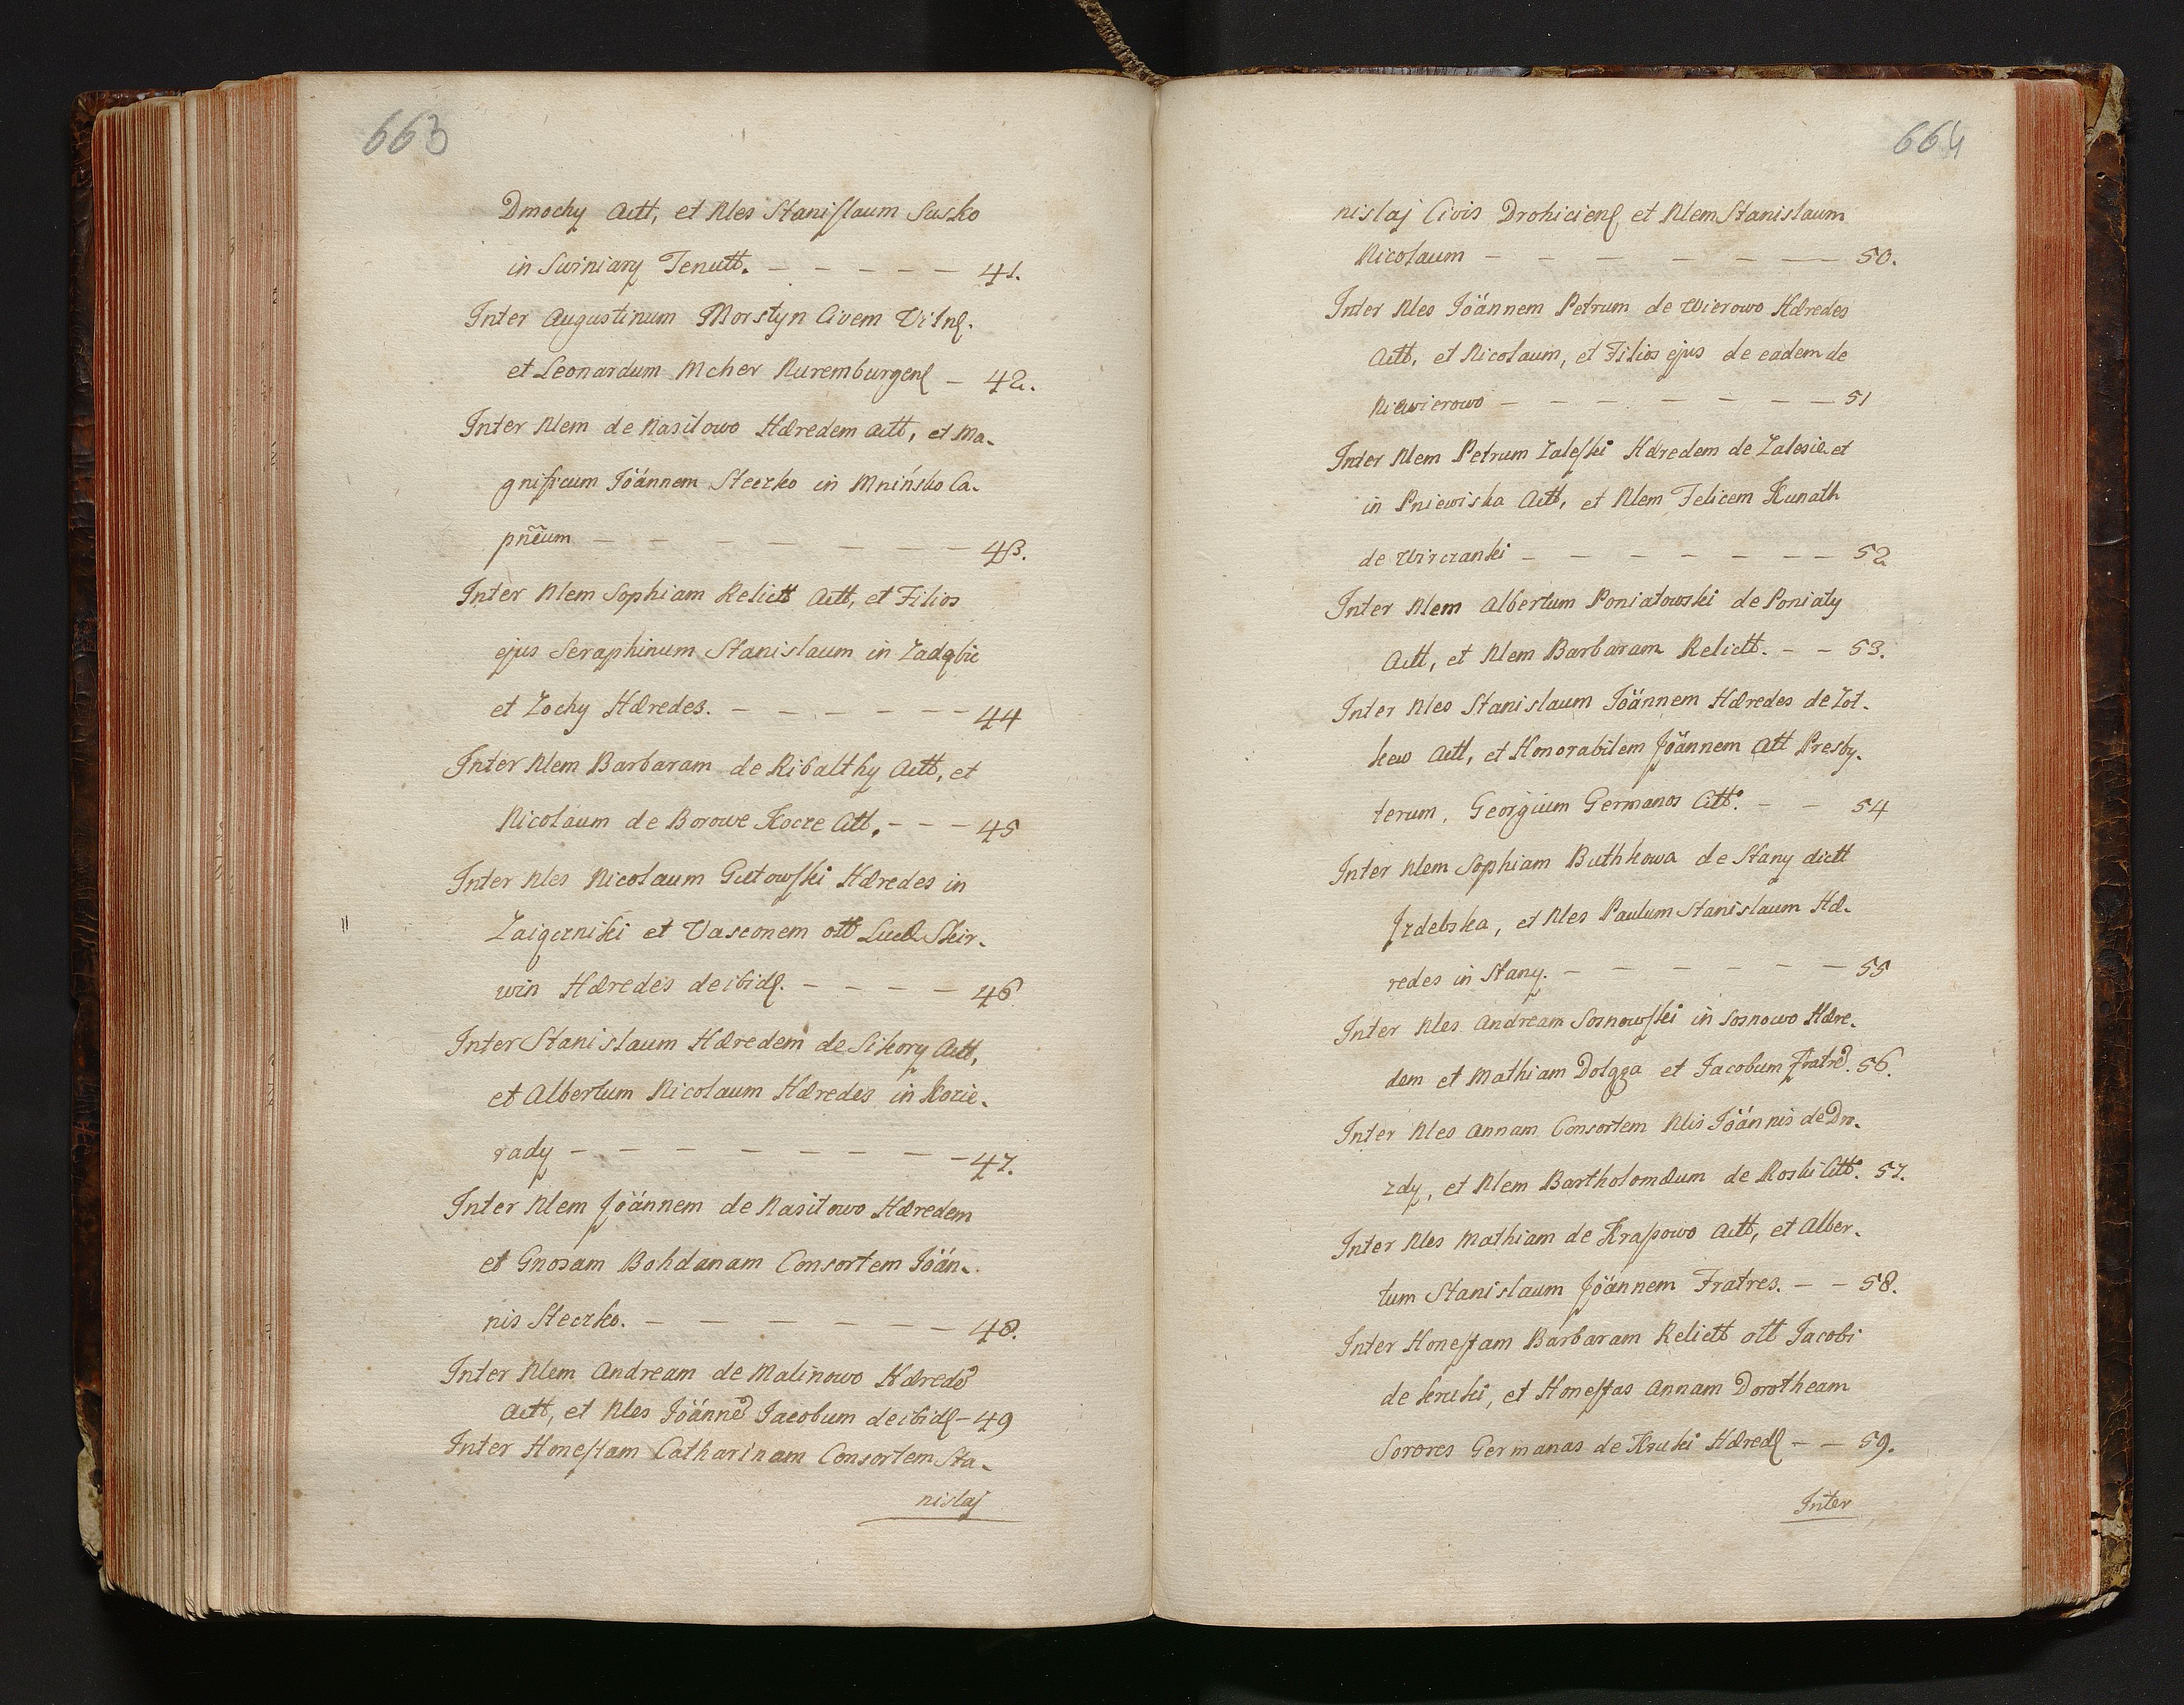 663
Dmochy Actt, et Nles Stanislaum Susko
in Swiniary Tenutt. — — — — — 41.
Inter Augustinum Morstyn Civem Viln.
et Leonardum Mcher Nuremburgen — 42.
Inter Nlem de Nasilowo Hæredem Actt, et Ma-
gnificum Joánnem Steczko in Mnińsko Ca-
pñeum — — — — — — — 43.
Inter Nlem Sophiam Relictt Actt, et Filios
ejus Seraphinum Stanislaum in Zadębie
et Zochy Hæredes. — — — — — — 44
Inter Nlem Barbaram de Ribalthy Actt, et
Nicolaum de Borowe Kocze Att. — — — 45
Inter Nles Nicolaum Gutowski Hæredes in
Zaigczniki et Vasconem ott Lucæ Skir-
win Hæredes de ibid. — — — — 46
Inter Stanislaum Hæredem de Sikory Actt,
et Albertum Nicolaum Hæredes in Kozie-
rady — — — — — — — — 47.
Inter Nlem Joánnem de Nasilowo Hæredem
et Gnosam Bohdanam Consortem Joán-
nis Steczko. — — — — — — 48.
Inter Nlem Andream de Malinowo Hæred
Actt, et Nles Joánne Jacobum de ibid — 49
Inter Honestam Catharinam Consortem Sta-
nislaj
664
nislaj Civis Drohicien et Nlem Stanislaum
Nicolaum — — — — — — 50.
Inter Nles Joánnem Petrum de Wierowo Hæredes
Actt, et Nicolaum, et Filios ejus de eadem de
Niewierowo — — — — — — — 51
Inter Nlem Petrum Zaleski Hæredem de Zalesie et
in Pniewiska Actt, et Nlem Felicem Kunath
de Wirczanki — — — — — — — 52
Inter Nlem Albertum Poniatowski de Poniaty
Actt, et Nlem Barbaram Relictt. — — 53.
Inter Nles Stanislaum Joánnem Hæredes de Zot-
kew Actt, et Honorabilem Joánnem Att Presby-
terum, Georgium Germanos Citt. — — 54
Inter Nlem Sophiam Buthkowa de Stany dictt
Izdebska, et Nles Paulum Stanislaum Hæ-
redes in Stany. — — — — — — 55
Inter Nles Andream Sosnowski in Sosnowo Hære-
dem et Mathiam Dolgga et Jacobum Fratre. 56.
Inter Nles Annam Consortem Nlis Joánnis de Dro-
zdy, et Nlem Bartholomæum de Roski Citt. 57.
Inter Nles Mathiam de Krapowo Actt, et Alber-
tum Stanislaum Joánnem Fratres. — — 58.
Inter Honestam Barbaram Relictt ott Jacobi
de Kruki, et Honestas Annam Dorotheam
Sorores Germanas de Kruki Hæred — — 59.
Inter